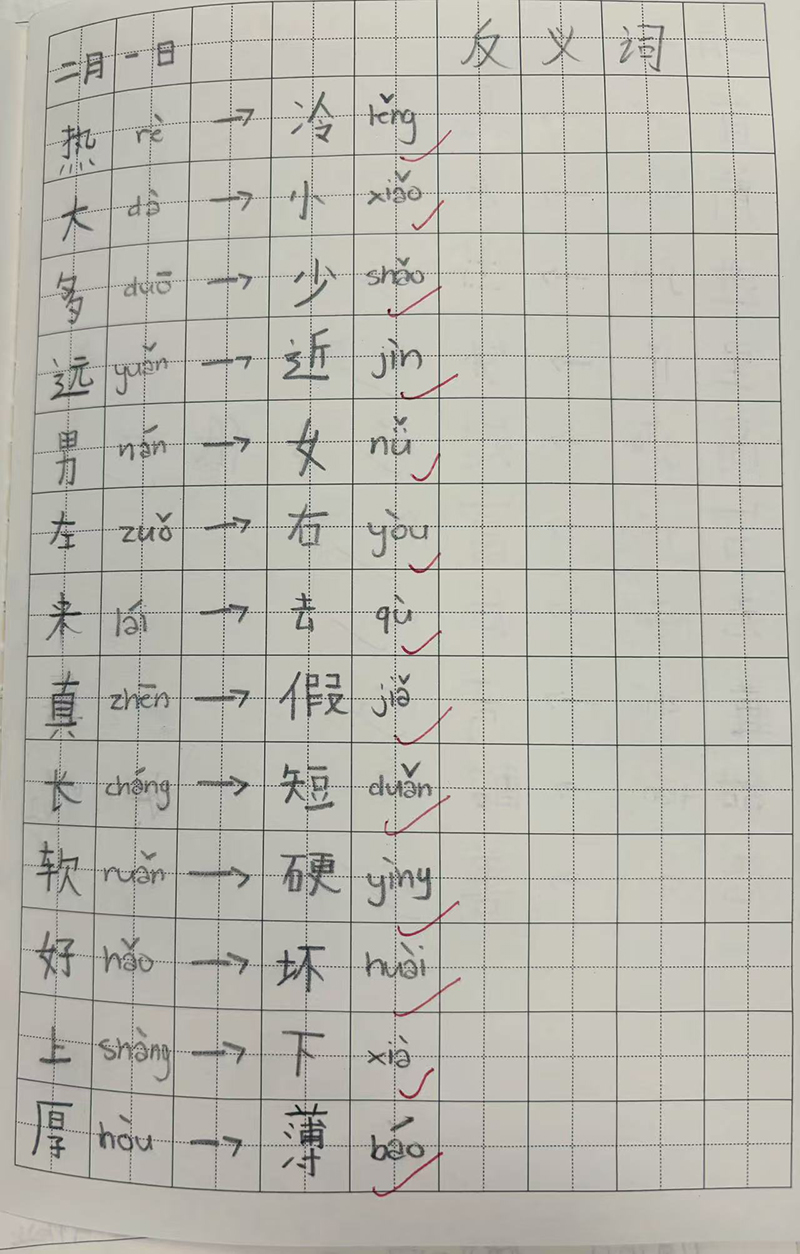 二月一日 反义词
热 rè → 冷 lěng
大 dà → 小 xiǎo
多 duō → 少 shǎo
远 yuǎn → 近 jìn
男 nán → 女 nǚ
左 zuǒ → 右 yòu
来 lái → 去 qù
真 zhēn → 假 jiǎ
长 cháng → 短 duǎn
软 ruǎn → 硬 yìny
好 hǎo → 坏 huài
上 shàng → 下 xià
厚 hòu → 薄 báo